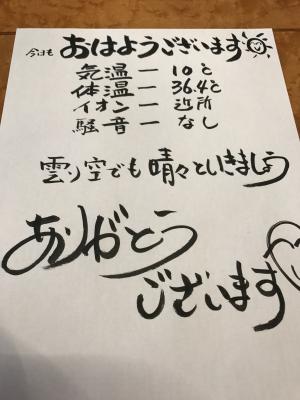 今日も おはようございます
気温ー 10℃
体温ー 36.4℃
イオンー 近所
騒音ー なし
雲り空でも晴々といきましょう
ありがとう
ございます